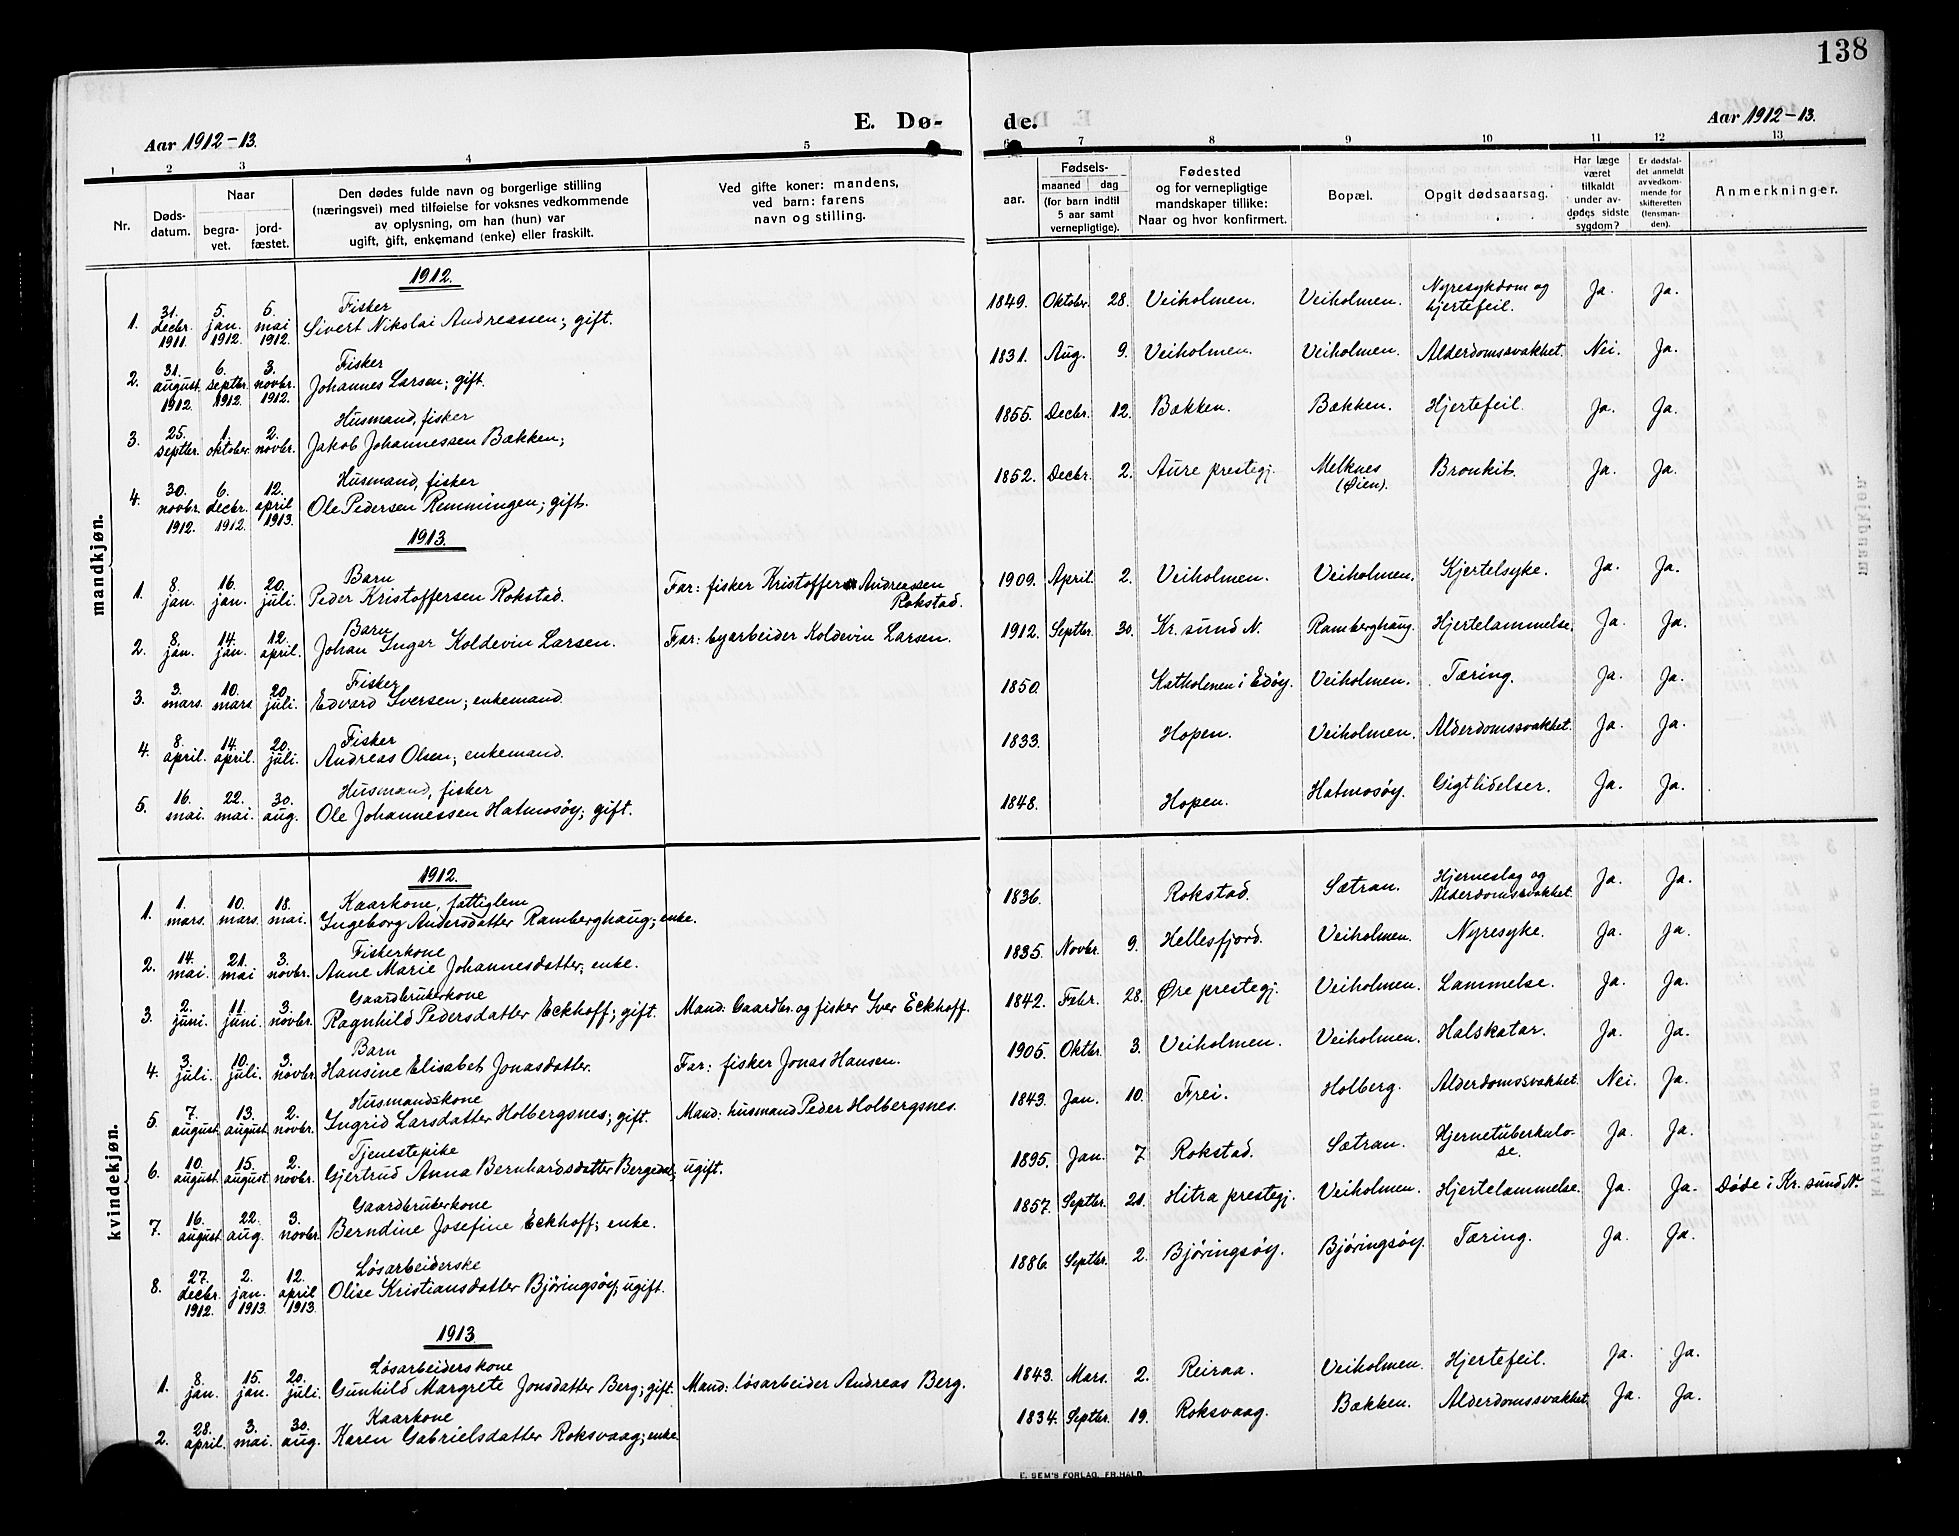 138
Aar 1912-13.
E. Dø-
de.
Aar 1912-13.
1 2 3 4 5 6 7 8 9 10 11 12 13
Nr.
Døds-
datum.
Naar
begra-
vet.
jord-
fæstet.
Den dødes fulde navn og borgerlige stilling
(næringsvei) med tilføielse for voksnes vedkommende
av oplysning, om han (hun) var
ugift, gift, enkemand (enke) eller fraskilt.
Ved gifte koner: mandens,
ved barn: farens
navn og stilling.
aar.
Fødsels-
maaned dag
(for barn indtil
5 aar samt
vernepligtige).
Fødested
og for vernepligtige
mandskaper tillike:
Naar og hvor konfirmert.
Bopæl.
Opgit dødsaarsag.
Har læge
været
tilkaldt
under av-
dødes sidste
sygdom?
Er dødsfal-
det anmeldt
av vedkom-
mende for
skifteretten
(lensman-
den).
Anmerkninger.
mandkjøn.
1912.
Fisker
1. 31. decbr. 1911. 5. jan. 1912. 6. mai 1912. Sivert Nikolai Andreassen; gift. 1849. Oktobr. 28. Veiholmen. Veiholmen. Nyresykdom og hjertefeil. Ja. Ja.
Fisker
2. 31. august 1912. 6. septbr. 1912. 3. novbr. 1912. Johannes Larsen; gift. 1831. Aug. 9. Veiholmen. Veiholmen. Alderdomssvakhet. Nei. Ja.
Husmand, fisker
3. 25. septbr. 1. oktober 2. novbr. Jakob Johannessen Bækken; 1855. Decbr. 12. Bækken. Bækken. Hjertefeil. Ja. Ja.
Husmand, fisker
4. 30. novbr. 1912. 6. decbr. 1912. 12. april 1913. Ole Pedersen Remmingen; gift. 1852. Decbr. 2. Aure prestegj. Melknes (Øien). Bronkit. Ja. Ja.
1913.
Barn
1. 8. jan. 16. jan. 20. juli. Peder Kristoffersen Rokstad. Far: fisker Kristoffer Andreassen Rokstad. 1909. April. 2. Veiholmen. Veiholmen. Kjertelsyke. Ja. Ja.
Barn
2. 8. jan. 14. jan. 12. april. Johan Ingar Koldevin Larsen. Far: byarbeider Koldevin Larsen. 1912. Septbr. 30. Kr. sund N. Ramberghaug. Hjertelammelse. Ja. Ja.
Fisker
3. 3. mars. 10. mars 20. juli. Edvard Iversen; enkemand. 1850. Katholmen i Edöy. Veiholmen. Tæring. Ja. Ja.
Fisker
4. 8. april. 14. april. 20. juli. Andreas Olsen; enkemand. 1833. Hopen. Veiholmen. Alderdomssvakhet. Ja. Ja.
Husmand, fisker
5. 16. mai. 22. mai. 30. aug. Ole Johannessen Hatmosöy; gift. 1848. Hopen. Hatmosöy. Gigtlidelser. Ja. Ja.
kvindekjøn.
1912.
Kaarkone, fattiglem
1. 1. mars. 10. mars. 18. mai. Ingeborg Andersdatter Ramberghaug; enke. 1836. Rokstad. Sætran. Hjerneslag og Alderdomssvakhet. Ja. Ja.
Fiskerkone
2. 14. mai. 21. mai 3. novbr. Anne Marie Johannesdatter; enke. 1835. Novbr. 9. Hellesfjord. Veiholmen. Nyresyke. Ja. Ja.
Gaardbrukerkone
3. 2. juni. 11. juni. 3. novbr. Ragnhild Pedersdatter Eckhoff; gift. Mand: Gaardbr. og fisker Iver Eckhoff. 1842. Febr. 28. Øre prestegj. Veiholmen. Lammelse. Ja. Ja.
Barn
4. 3. juli. 10. juli. 3. novbr. Hansine Elisabet Jonasdatter. Far: fisker Jonas Hansen. 1905. Oktbr. 3. Veiholmen. Veiholmen. Halskatar. Ja. Ja.
Husmandskone
5. 7. august 13. august 2. novbr. Ingrid Larsdatter Holbergsnes; gift. Mand: husmand Peder Holbergsnes. 1843. Jan. 10. Frei. Holberg. Alderdomssvakhet. Nei. Ja.
Tjenestepike
6. 10. august 15. august 2. novbr. Gjertrud Anna Bernhardsdatter Bergedal; ugift. 1895. Jan. 7. Rokstad. Sætran. Hjernetuberkulo-
se. Ja. Ja.
Gaardbrukerkone
7. 16. august 22. aug. 3. novbr. Berndine Josefine Eckhoff; enke. 1857. Septbr. 21. Hitra prestegj. Veiholmen. Hjertelammelse. Ja. Ja. Døde i Kr. sund N.
Løsarbeiderske
8. 27. decbr. 1912. 2. jan. 1913. 12. april 1913. Olise Kristiansdatter Björingsöy; ugift. 1886. Septbr. 2. Björingsöy. Björingsöy. Tæring. Ja. Ja.
1913.
Løsarbeiderskone
1. 8. jan. 15. jan. 20. juli. Gunhild Margrete Jonsdatter Berg; gift. Mand: løsarbeider Andreas Berg. 1843. Mars. 2. Reiraa. Veiholmen. Hjertefeil. Ja. Ja.
Kaarkone
2. 28. april. 3. mai. 30. aug. Karen Gabrielsdatter Roksvaag; enke. 1834. Septbr. 19. Roksvaag. Bækken. Alderdomssvakhet. Ja. Ja.
E. SEM'S FORLAG, FR.HALD.